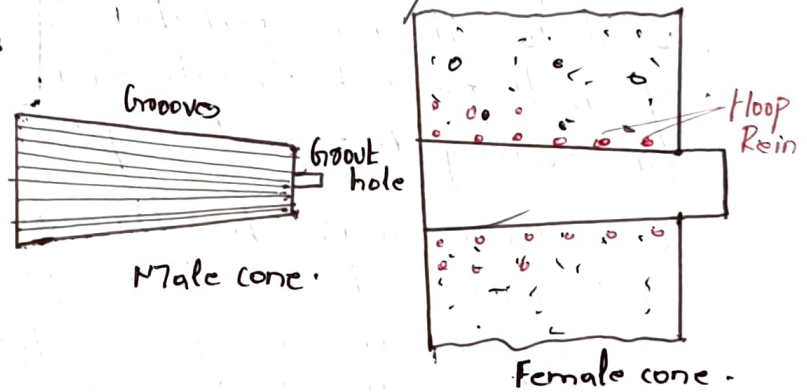 Grooves
Grout
hole
Male cone.
Hoop
Rein
Female cone.